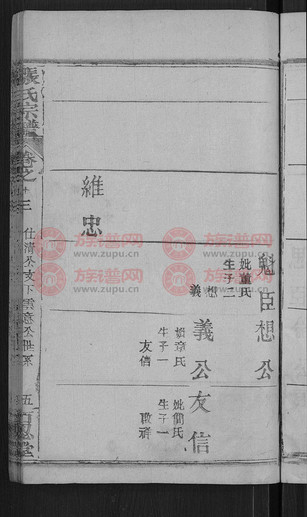 魁臣想公
妣董氏
生子二
想
義
義公友信
妣章氏
生子一
友信
妣簡氏
生子一
維忠
張氏宗譜
卷之十三
仕清公支下雲意公世系
五
族譜网
www.zupu.cn
族譜网
www.zupu.cn
族譜网
www.zupu.cn
族譜网
www.zupu.cn